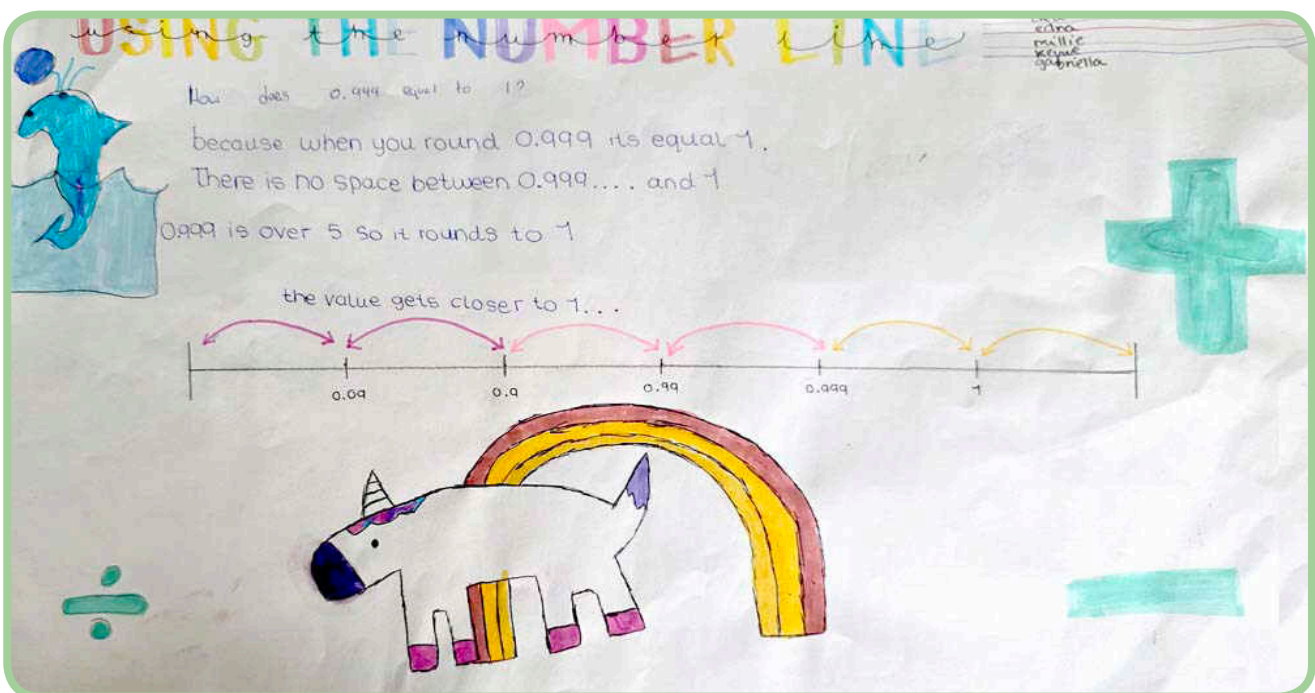 USING THE NUMBER LINE
using the number line
edna
millie
gabriella
How does 0.999 equal to 1?
because when you round 0.999 its equal 1.
There is no space between 0.999.... and 1
0.999 is over 5 so it rounds to 1
the value gets closer to 1...
0.09 0.9 0.99 0.999 1